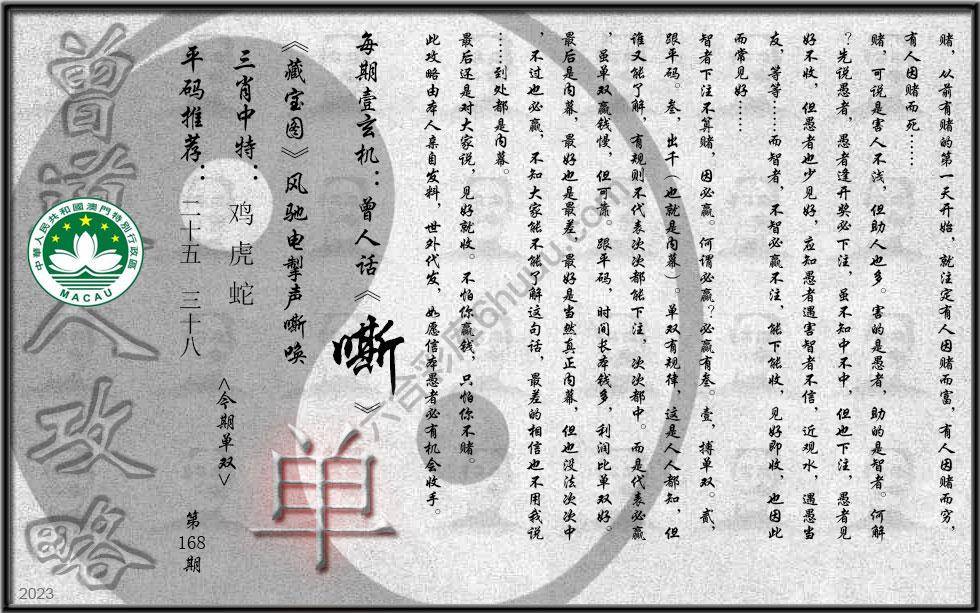 赌，从前有赌的第一天开始，就注定有人因赌而富，有人因赌而穷，
有人因赌而死……
赌，可说是害人不浅，但助人也多。害的是愚者，助的是智者。何解
？先说愚者，愚者逢开奖必下注，虽不知中不中，但也下注，愚者见
好不收，但愚者也少见好，应知愚者遇害智者不信，近观水，遇愚当
友，等等……而智者，不智必赢不注，能下能收，见好即收，也因此
而常见好……
智者下注不算赌，因必赢，何谓必赢？必赢有叁。壹，搏单双。贰，
跟平码。叁，出千（也就是内幕）。单双有规律，这是人人都知，但
谁又能了解，有规则不代表次次都能下注，次次都中。而是代表必赢
，虽单双赢钱慢，但可靠。跟平码，时间长本钱多，利润比单双好。
最后是内幕，最好也是最差，最好是当然真正内幕，但也没法次次中
，不过也必赢，不知大家能不能了解这句话，最差的相信也不用我说
……到处都是内幕。
最后还是对大家说，见好就收。不怕你赢钱，只怕你不赌。
此攻略由本人亲自发料，世外代发，如愿信本愚者必有机会收手。
每期壹玄机：曾人话《嘶》
《藏宝图》风驰电掣声嘶唤
三肖中特：鸡虎蛇
平码推荐：二十五 三十八
<今期单双>
单
第168期
曾道人攻略
中華人民共和國澳門特別行政區
MACAU
六合彩库6huhu.com
2023